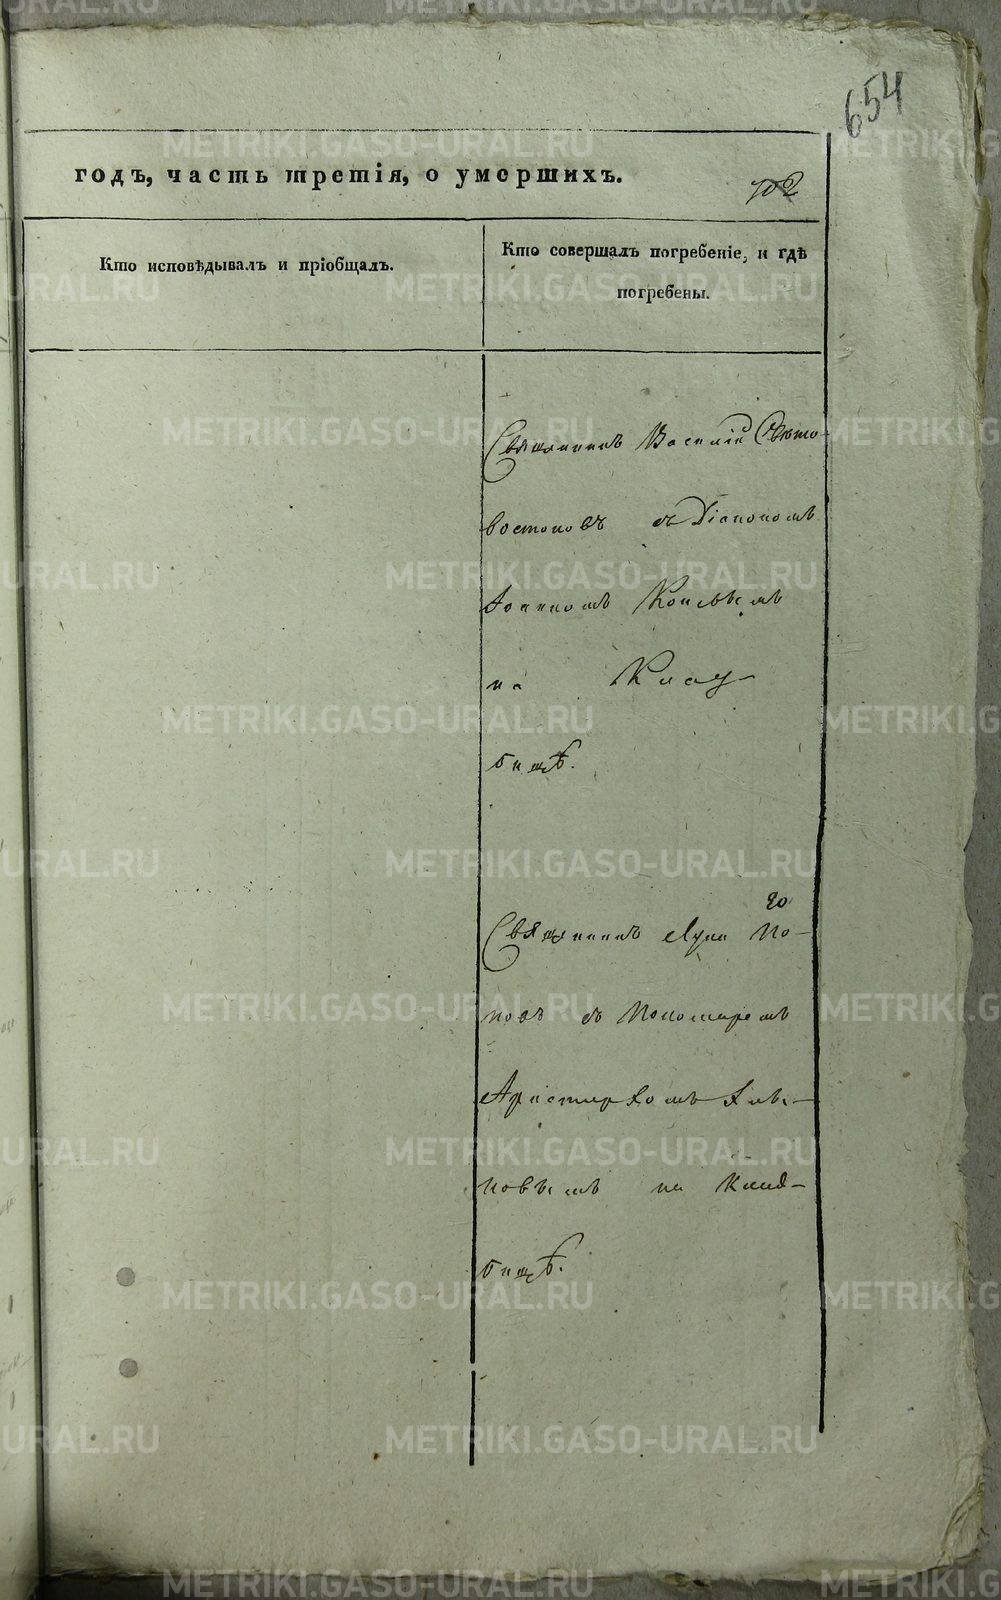 654
годъ, часть третія, о умершихъ.
702
Кто исповѣдывалъ и пріобщалъ.
Кто совершалъ погребеніе, и гдѣ
погребены.
Священникъ Василій Свѣто-
востоковъ съ Діакономъ
Іоанномъ
на Клад-
бищѣ.
Священникъ Лука По-
повъ съ Пономаремъ
Аристархомъ
новымъ на Клад-
бищѣ.
METRIKI.GASO-URAL.RU